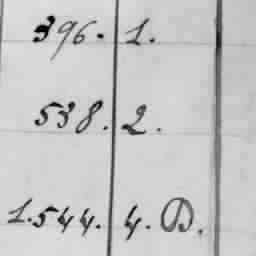 396. 1.
538. 2.
1.544. 4. D.